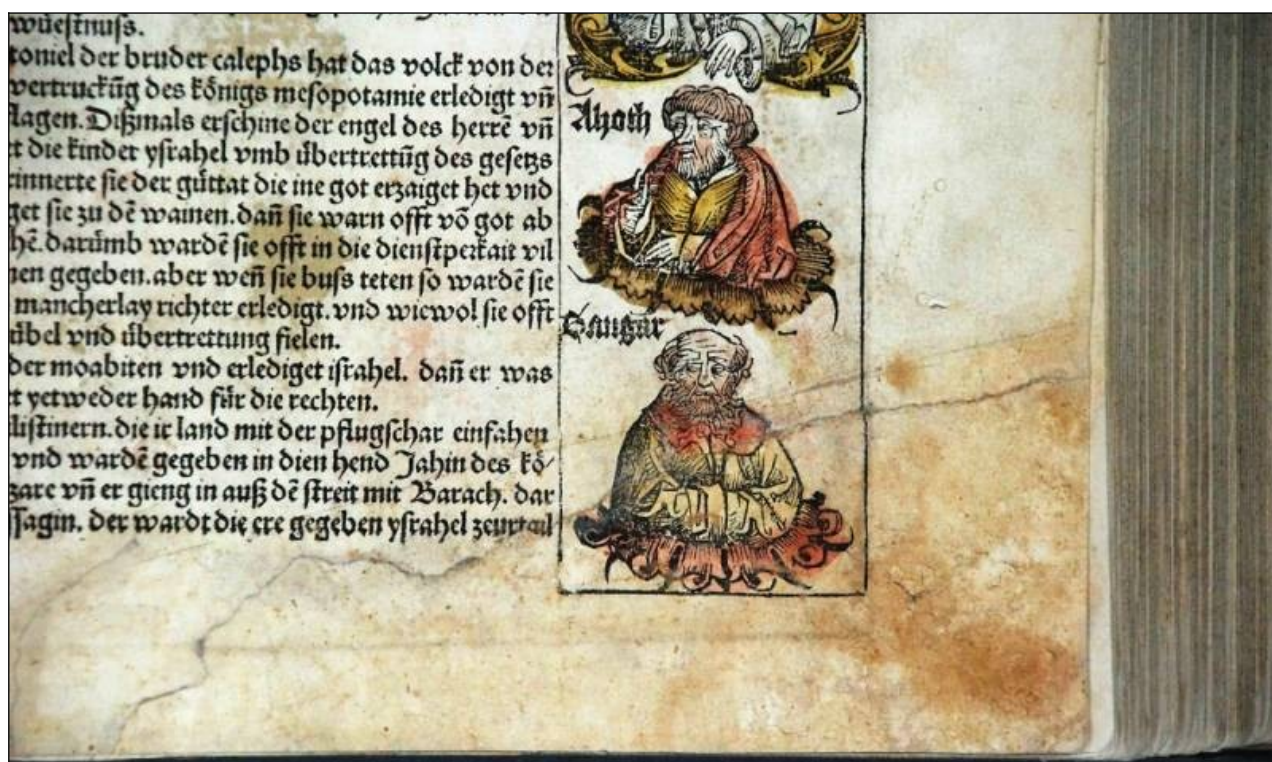 wüestnuß.
toniel der bruder calephs hat das volck von der
vertruckũg des königs mesopotamie erledigt vñ
lagen. Dißmals erschine der engel des herrẽ vñ
t die kinder ysrahel vmb übertrettũg des gesetzs
rinnerte sie der güttat die ine got erzaiget het vnd
get sie zu dẽ wainen. dañ sie warn offt võ got ab
hẽ. darũmb wardẽ sie offt in die dienstperkait vil
nen gegeben. aber weñ sie buss teten so wardẽ sie
mancherlay richter erledigt. vnd wiewol sie offt
übel vnd übertrettung fielen.
der moabiten vnd erlediget israhel. dañ er was
t yetweder hand für die rechten.
listinern. die ir land mit der pflugschar einfahen
vnd wardẽ gegeben in dien hend Jahin des kö⸗
zare vñ er gieng in auß dẽ streit mit Barach. dar
ssagin. der wardt die ere gegeben ysrahel zeurtail
Ahoth
Sangar